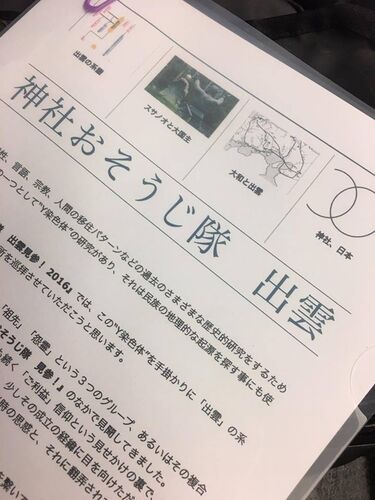 出雲の系譜
スサノオと大国主
大和と出雲
神社、日本
神社おそうじ隊 出雲
性、言語、宗教、人間の移住パターンなどの過去のさまざまな歴史的研究をするため
の一つとして"Y染色体"の研究があり、それは民族の地理的な起源を探す事にも使
出雲見参！2016』では、この"Y染色体"を手掛かりに「出雲」の系
所を巡拝させていただこうと思います。
「祖先」「怨霊」という３つのグループ、あるいはその複合
そうじ隊 見参！』のなかで見聞してきました。
続く「ご利益」信仰という見せかけの裏で、
少しその成立の経緯に目を向けただ
時の思惑と、それに翻弄され